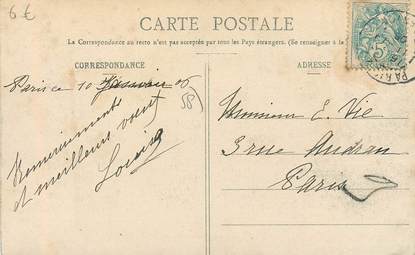 6€
CARTE POSTALE
La Correspondance au recto n'est pas acceptée par tous les Pays étrangers. (Se renseigner à la
CORRESPONDANCE
ADRESSE
Paris ce 10 Janvier 06
58
Remerciements
et meilleurs voeux
Louise
Monsieur E. Vie
3 rue Audran
Paris